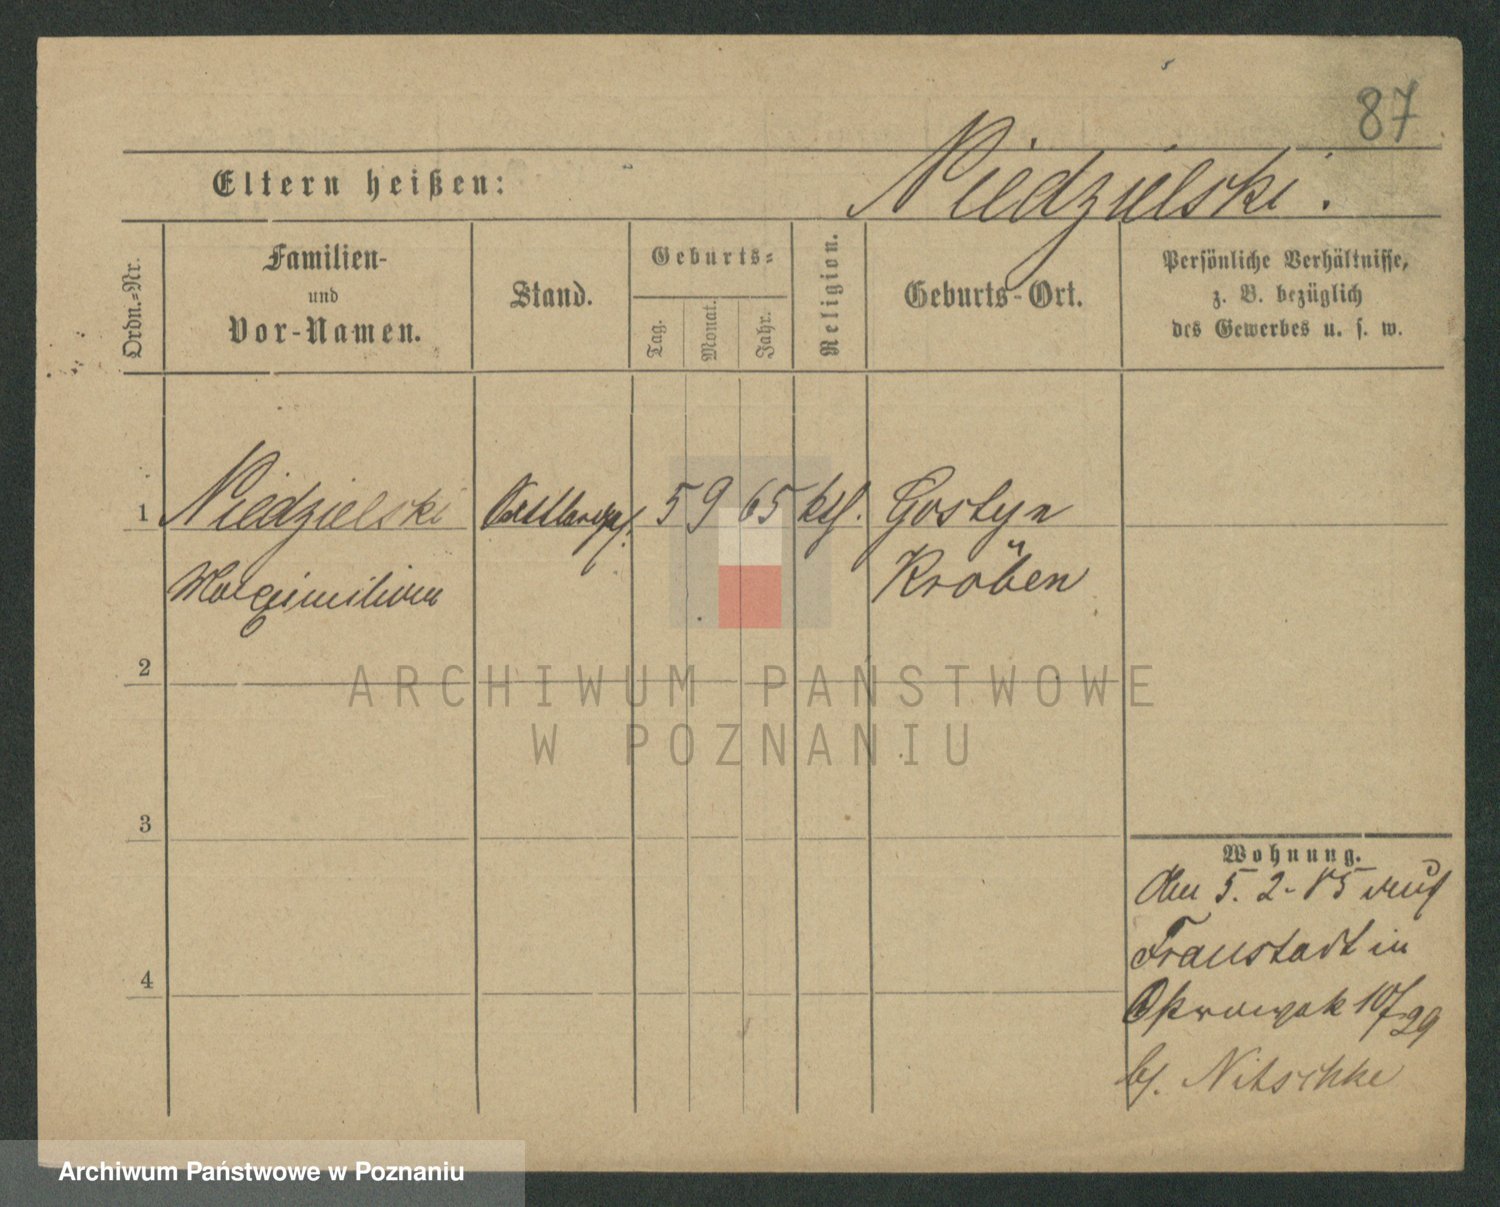 87
Niedzielski.
Eltern heißen:
Ordn.=Nr.
Familien-
und
Vor-Namen.
Stand.
Geburts=
Tag.
Monat.
Jahr.
Religion.
Geburts-Ort.
Persönliche Verhältnisse,
z. B. bezüglich
des Gewerbes u. s. w.
1 Niedzielski 5 9 65 ktl. Gostyn
Maximilian Kröben
2
3
4
Wohnung.
Am 5. 2. 85 aus
Fraustadt in
10/29
bei Nitschke
ARCHIWUM PAŃSTWOWE
W POZNANIU
Archiwum Państwowe w Poznaniu